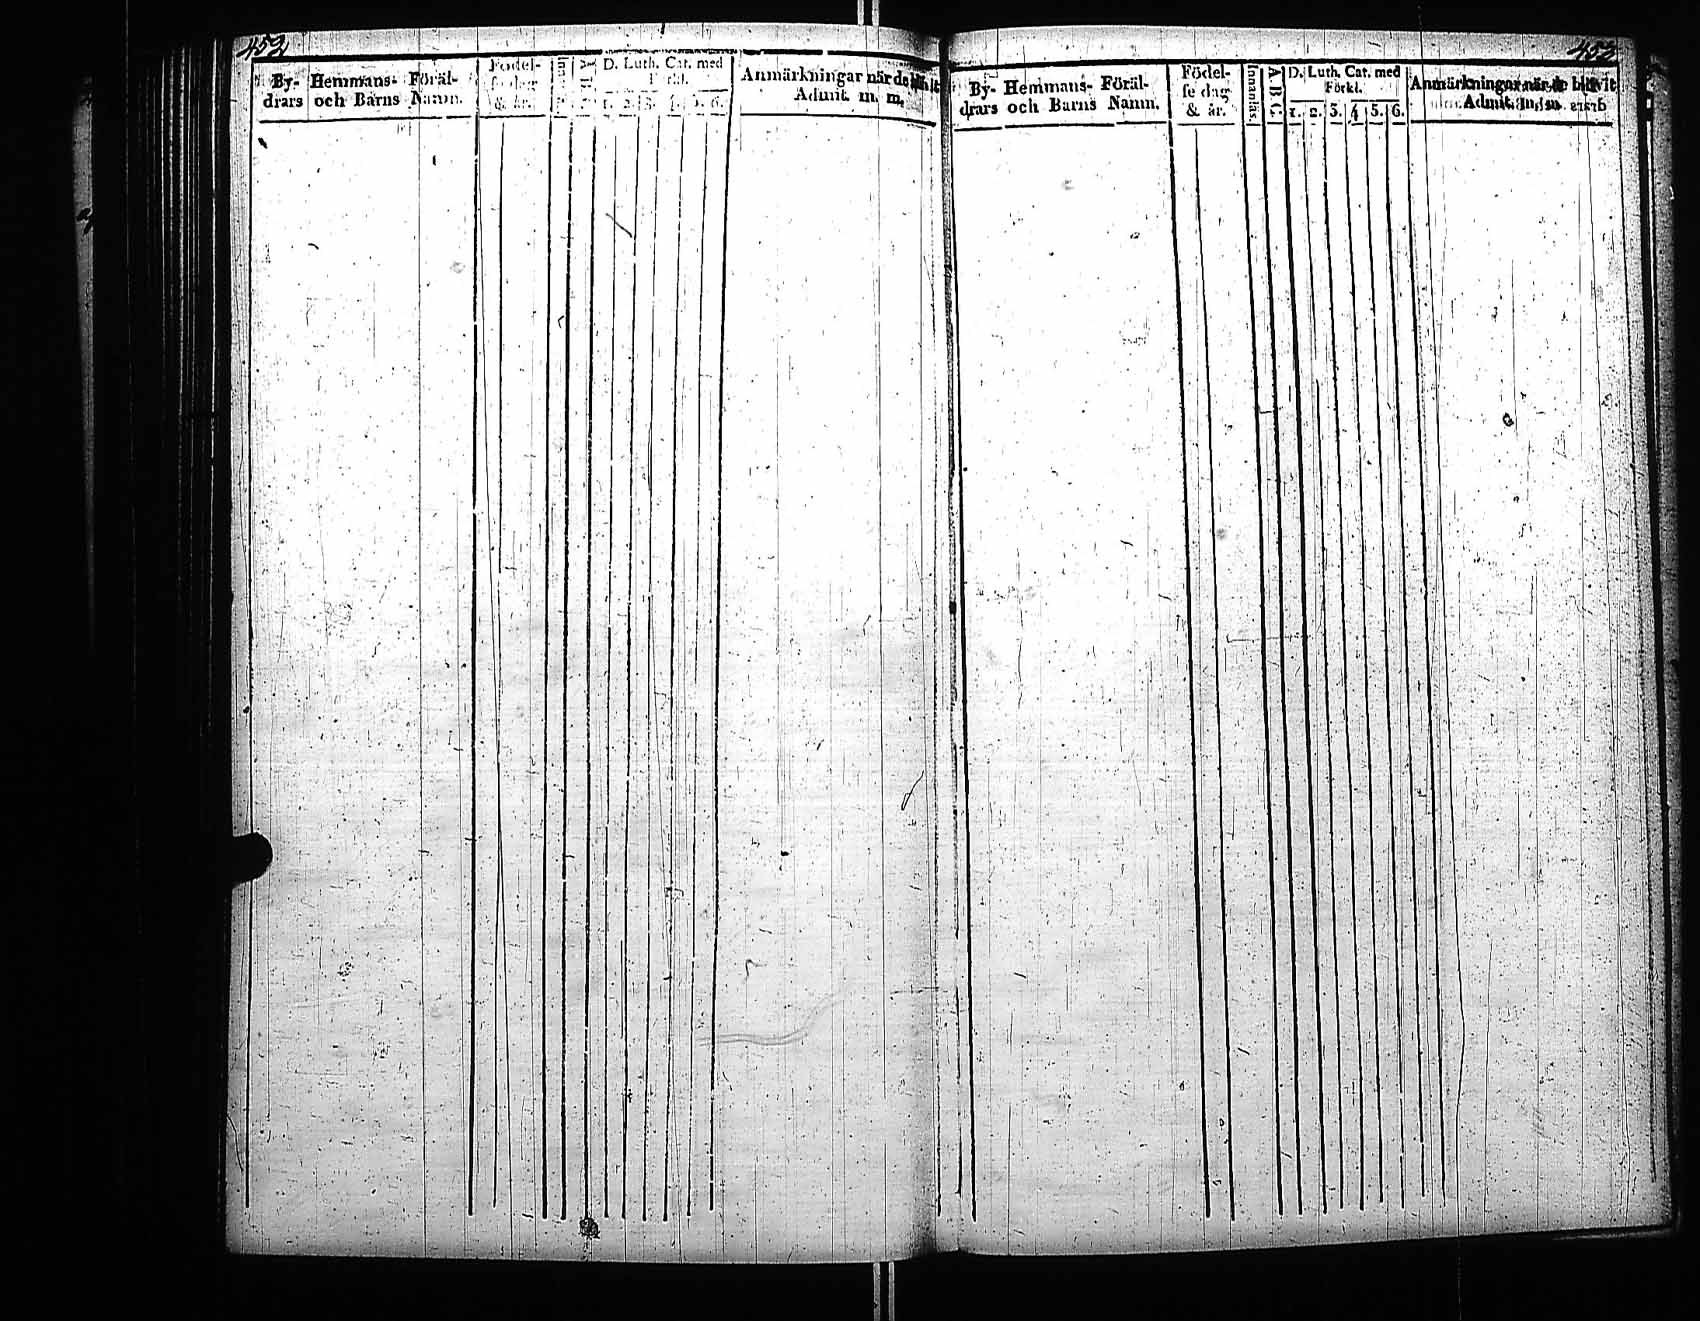 452
By- Hemmans- Föräl-
drars och Barns Namn.
Födel-
se dag
& år.
D. Luth. Cat. med
1. 2. 3. 4. 5. 6.
Anmärkningar när de
Admit. m. m.
453
By- Hemmans- Föräl-
drars och Barns Namn.
Födel-
se dag
& år.
Innanläs.
A B C.
D. Luth. Cat. med
Förkl.
1. 2. 3. 4 5. 6.
Anmärkningar när de blifvit
Admit.